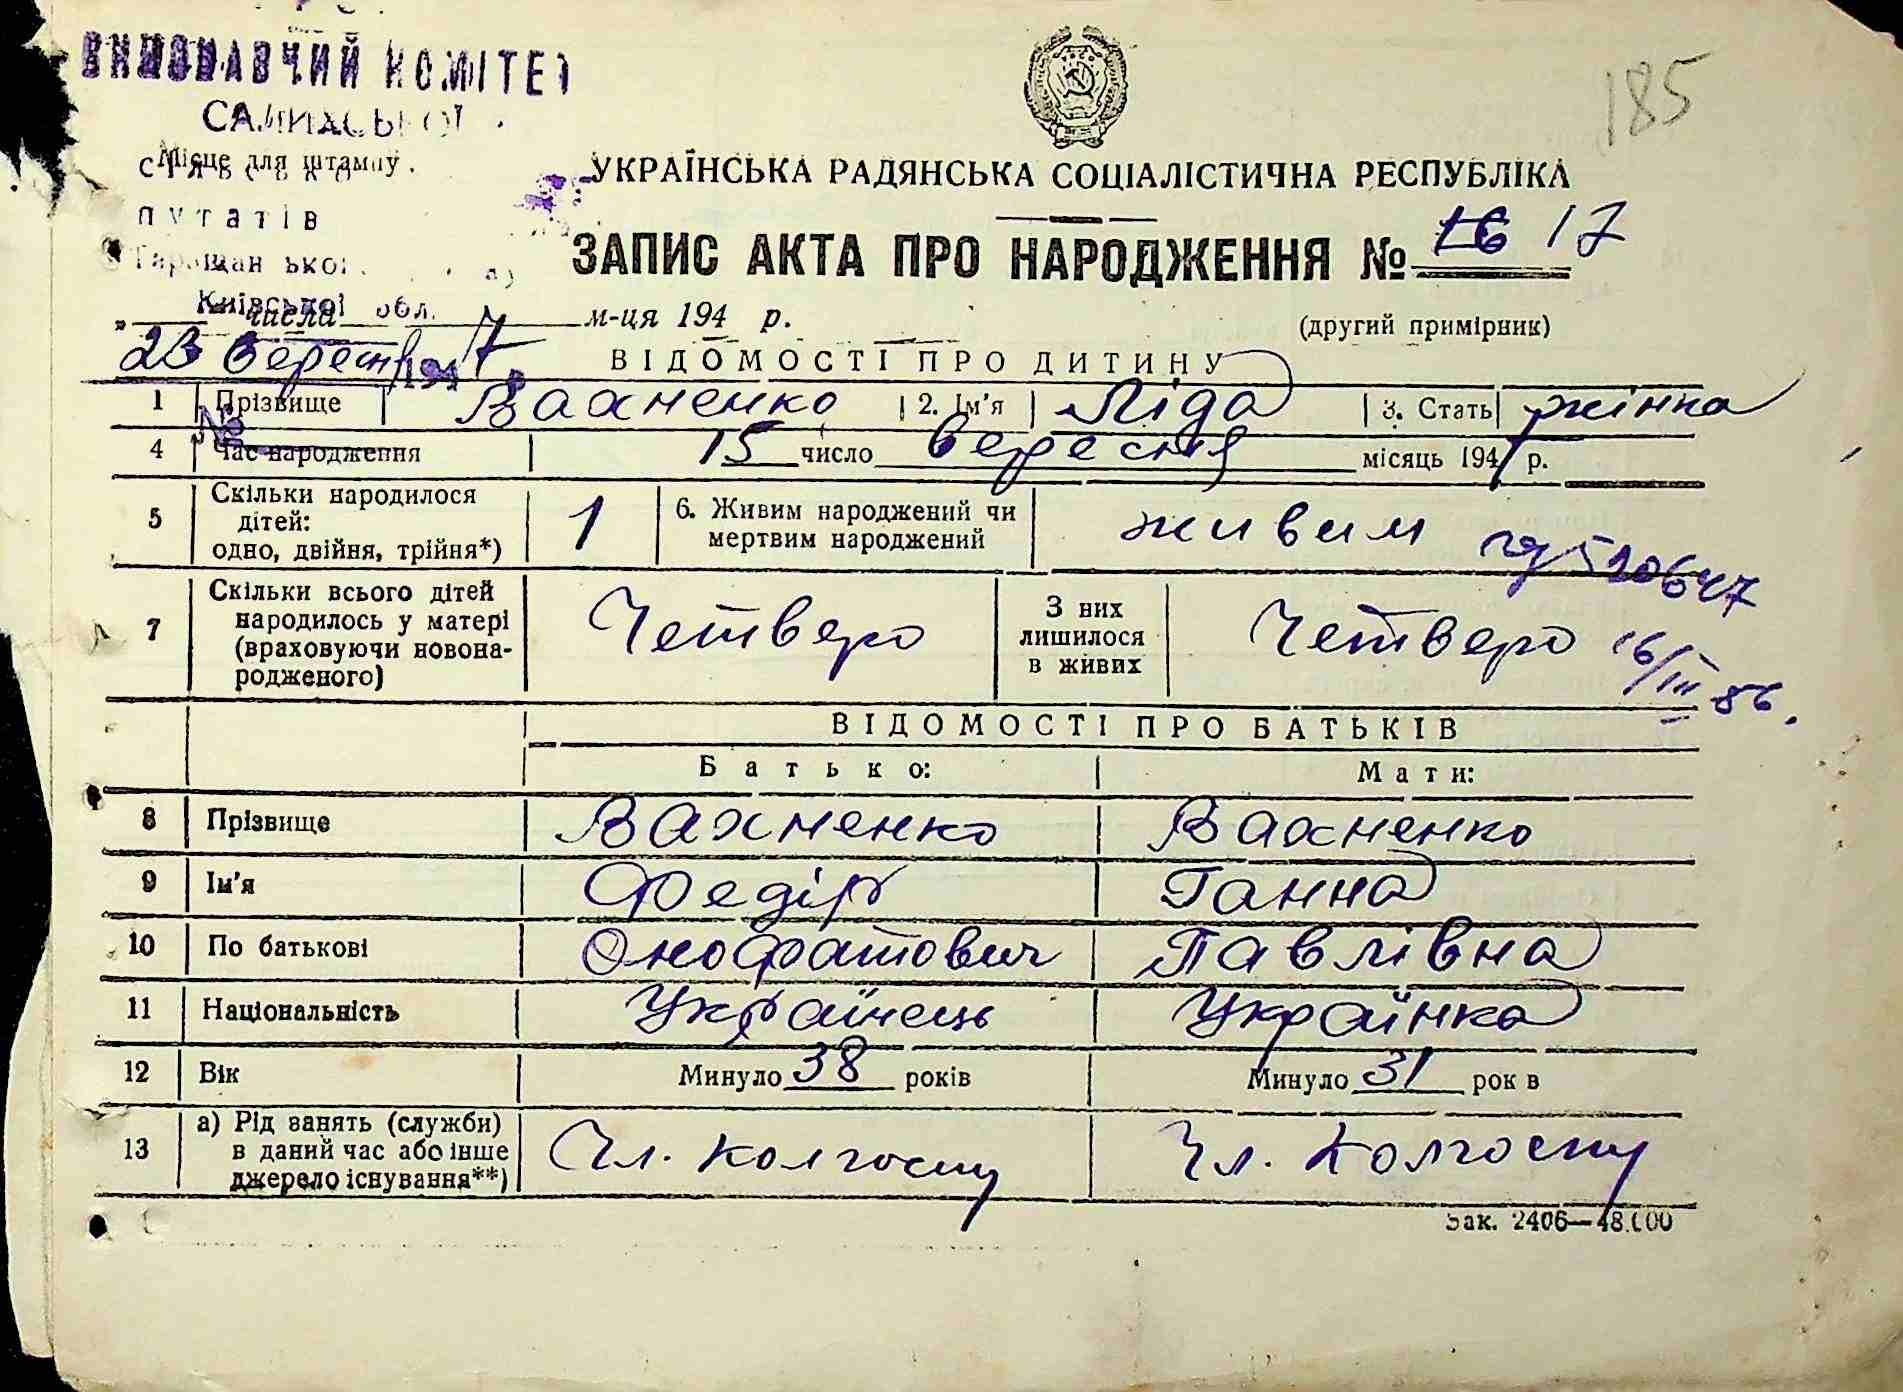 ВИКОНАВЧИЙ КОМІТЕТ
185
Місце для штампу.
УКРАЇНСЬКА РАДЯНСЬКА СОЦІАЛІСТИЧНА РЕСПУБЛІКА
путатів
ЗАПИС АКТА ПРО НАРОДЖЕННЯ № 16 17
Київської обл.
числа м-ця 194 р.
(другий примірник)
23 Вересня 1947
ВІДОМОСТІ ПРО ДИТИНУ
1 Прізвище Вахненко 2. Ім'я Ліда 3. Стать жінка
№
4 Час народження 15 число Вересня місяць 1947 р.
5 Скільки народилося дітей: одно, двійня, трійня*) 1 6. Живим народжений чи мертвим народжений живим
520647
7 Скільки всього дітей народилось у матері (враховуючи новонародженого) Четверо З них лишилося в живих Четверо
16/III 86.
ВІДОМОСТІ ПРО БАТЬКІВ
Батько: Мати:
8 Прізвище Вахненко Вахненко
9 Ім'я Федір Ганна
10 По батькові Онофратович Павлівна
11 Національність Українець Українка
12 Вік Минуло 38 років Минуло 31 рок в
13 а) Рід занять (служби) в даний час або інше джерело існування**) Чл. колгоспу Чл. Колгоспу
Зак. 2406—48.000